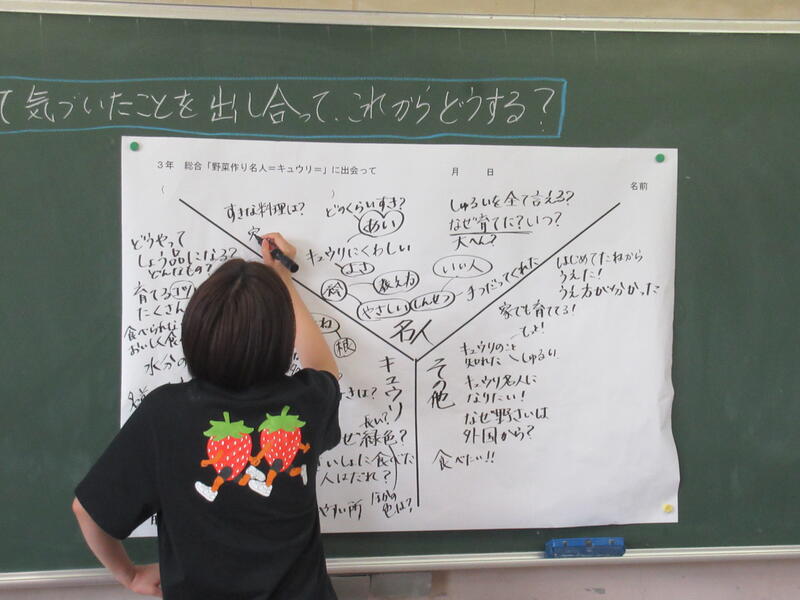 て気づいたことを出し合って、これからどうする?
3年 総合「野菜作り名人=キュウリ=」に出会って 月 日
( ) 名前
すきな料理は?
どのくらいすき?
あい
キュウリにくわしい
よさ
いい人
教え方
やさしい
しんせつ
手つだってくれた
名人
しゅるいを全て言える?
なぜ育てた?いつ?
大へん?
どうやって
しょう品になる?
どんなもの?
育てるコツ
たくさん
食べられ
おいしく食
水分の
ね
根
キュウリ
きは?
長い?
ぜ緑色?
いしょに食べた
人はだれ?
やすい所
ほかの
色は?
その他
はじめてたねから
うえた!
うえ方が分かった
家でも育ててる!
キュウリのこと
知れた
しゅるい
キュウリ名人に
なりたい!
なぜ野さいは
外国から?
食べたい!!